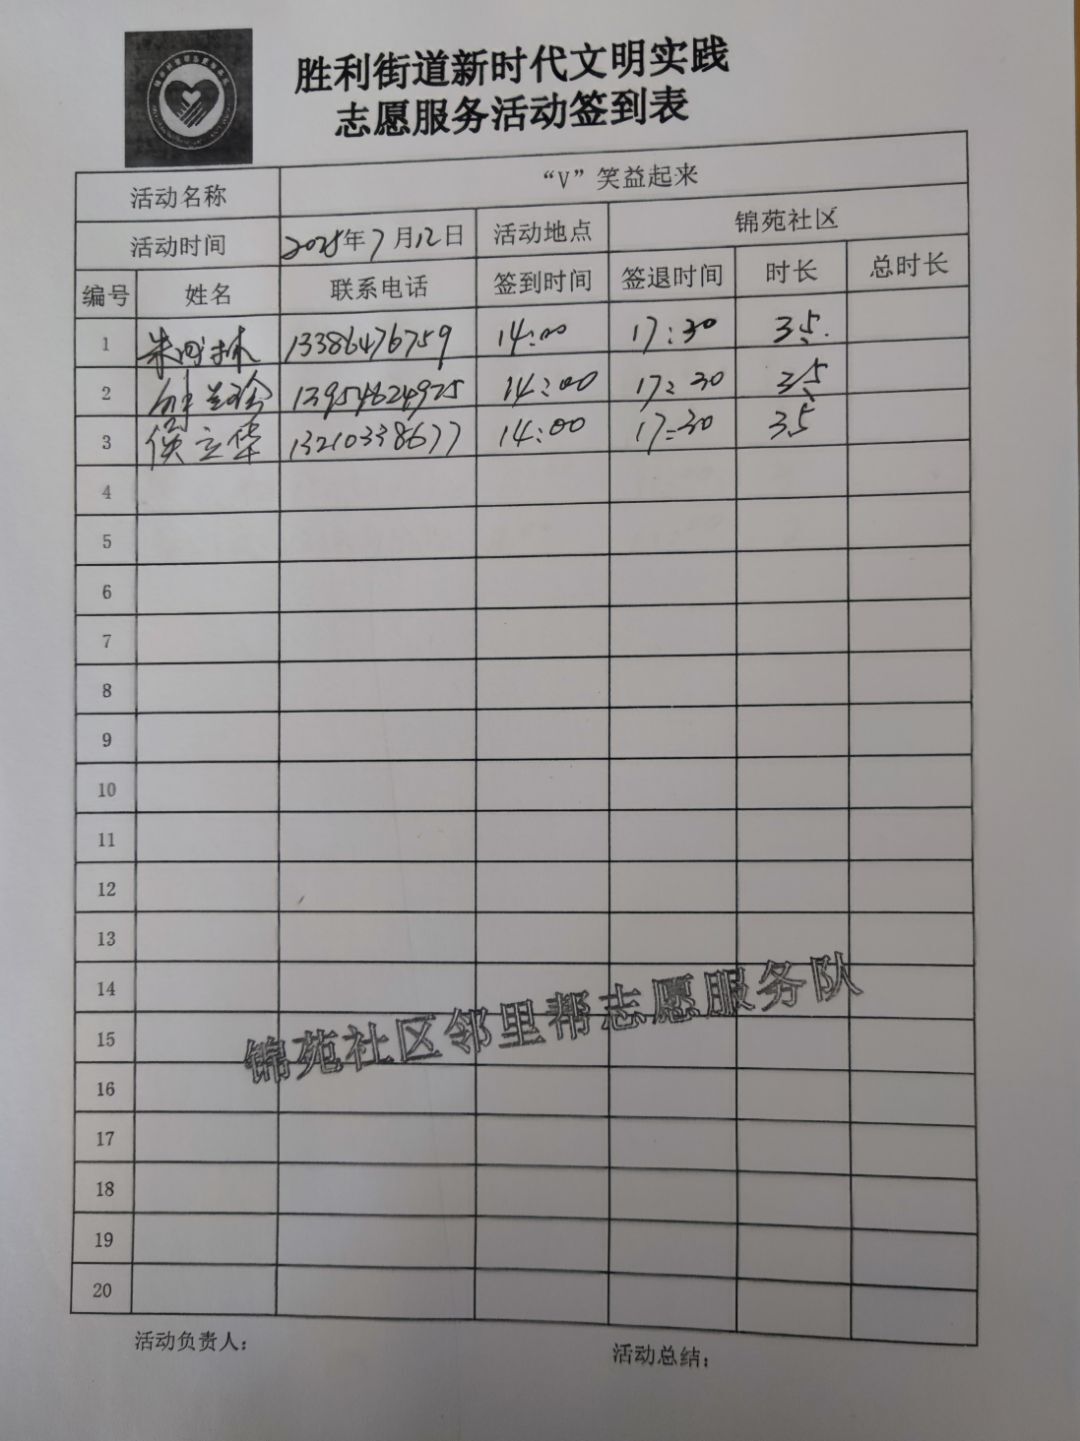 胜利街道新时代文明实践
志愿服务活动签到表
活动名称 “V”笑益起来
活动时间 2025年7月12日 活动地点 锦苑社区
编号 姓名 联系电话 签到时间 签退时间 时长 总时长
1 13386476759 14:00 17:30 3.5
2 13954624925 14:00 17:30 3.5
3 侯立华 13210338677 14:00 17:30 3.5
4
5
6
7
8
9
10
11
12
13
14
15
16
17
18
19
20
锦苑社区邻里帮志愿服务队
活动负责人： 活动总结：